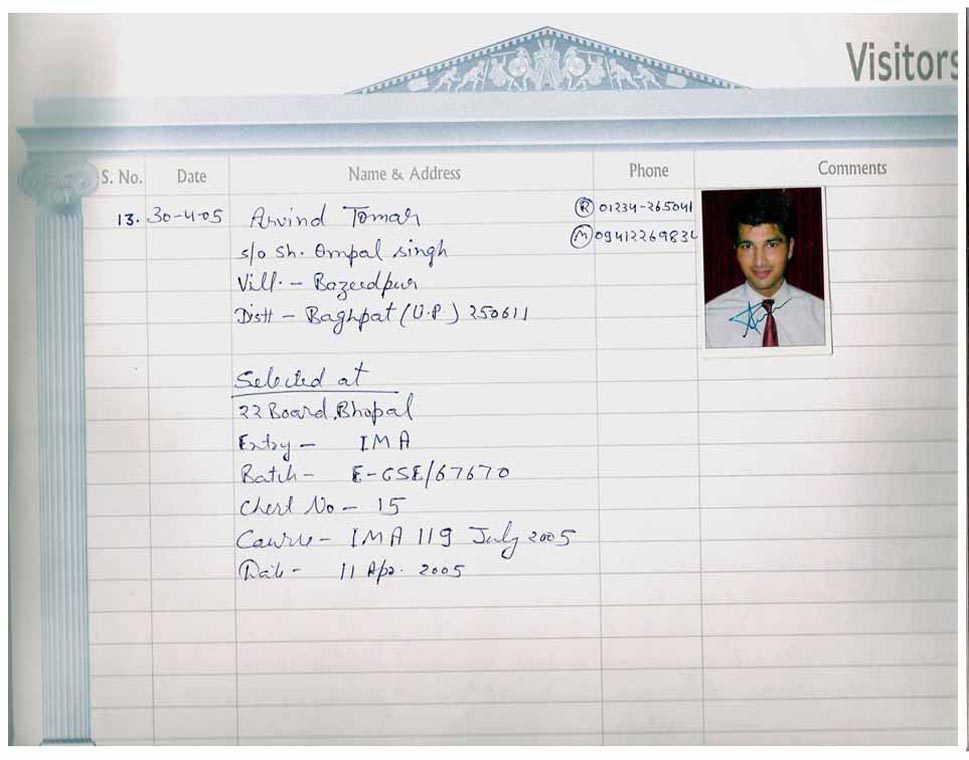 Visitors
S. No. Date Name & Address Phone Comments
13. 30-4-05 Arvind Tomar (R) 01234-265041
s/o Sh. Ompal Singh (M) 09412269834
Vill. - Bazeedpur
Distt - Baghpat (U.P.) 250611
Selected at
22 Board, Bhopal
Entry - IMA
Batch - E-GSE/67670
Chest No - 15
Course - IMA 119 July 2005
Date - 11 Apr. 2005